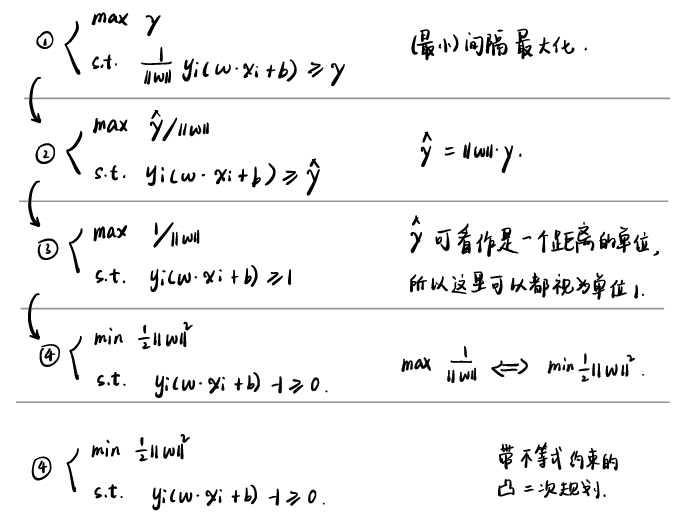 ① max γ
s.t. 1/||w|| yi(w·xi+b) ≥ γ
(最小)间隔最大化.
② max γ̂/||w||
s.t. yi(w·xi+b) ≥ γ̂
γ̂ = ||w||·γ.
③ max 1/||w||
s.t. yi(w·xi+b) ≥ 1
γ̂ 可看作是一个距离的单位,
所以这里可以都视为单位1.
④ min ½||w||²
s.t. yi(w·xi+b) -1 ≥ 0.
max 1/||w|| ⟺ min ½||w||².
④ min ½||w||²
s.t. yi(w·xi+b) -1 ≥ 0.
带不等式约束的
凸二次规划.